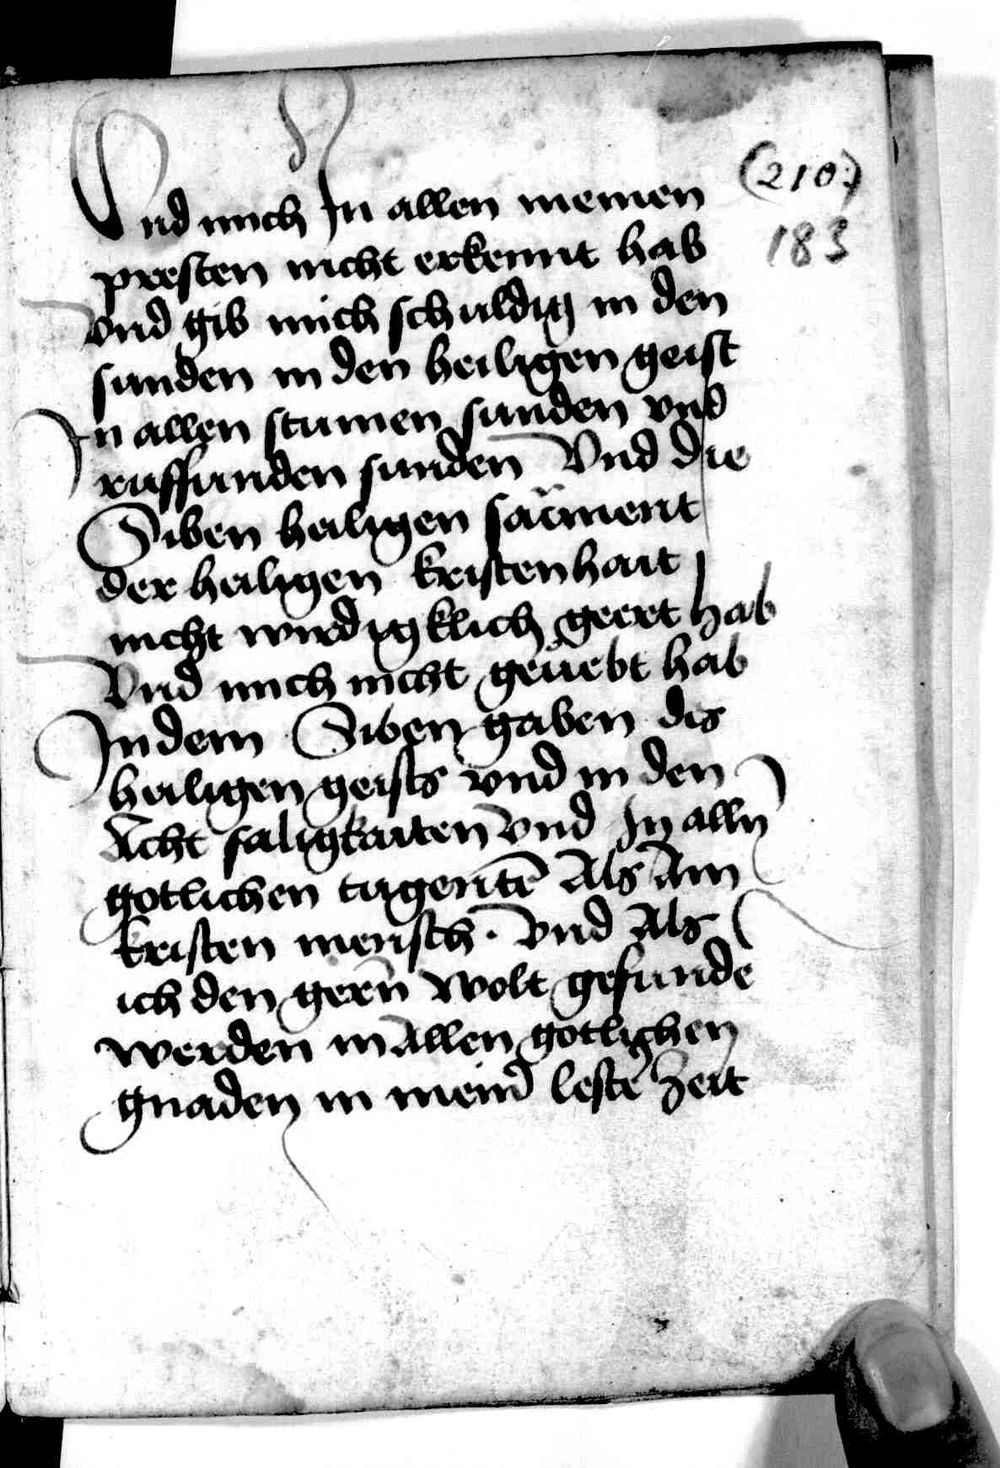 Vnd mich In allen meinen
(210.)
presten nicht erkennt hab
183
Vnd gib mich schuldig in den
sunden in den heiligen geist
In allen stumen sunden vnd
ruffunden sunden Vnd die
Siben heiligen sacment
der heiligen kristenhait
nicht wirdigklich geert hab
Vnd mich nicht geuebt hab
In dem Siben gaben dis
heiligen geists vnd in den
Acht saligkaiten vnd In alln
gotlichen tugentē Als Ain
kristen mensch · Vnd Als
ich den gern̄ wolt gefunde
werden in Allen gotlichen
gnaden in mein̄ lestē Zeit